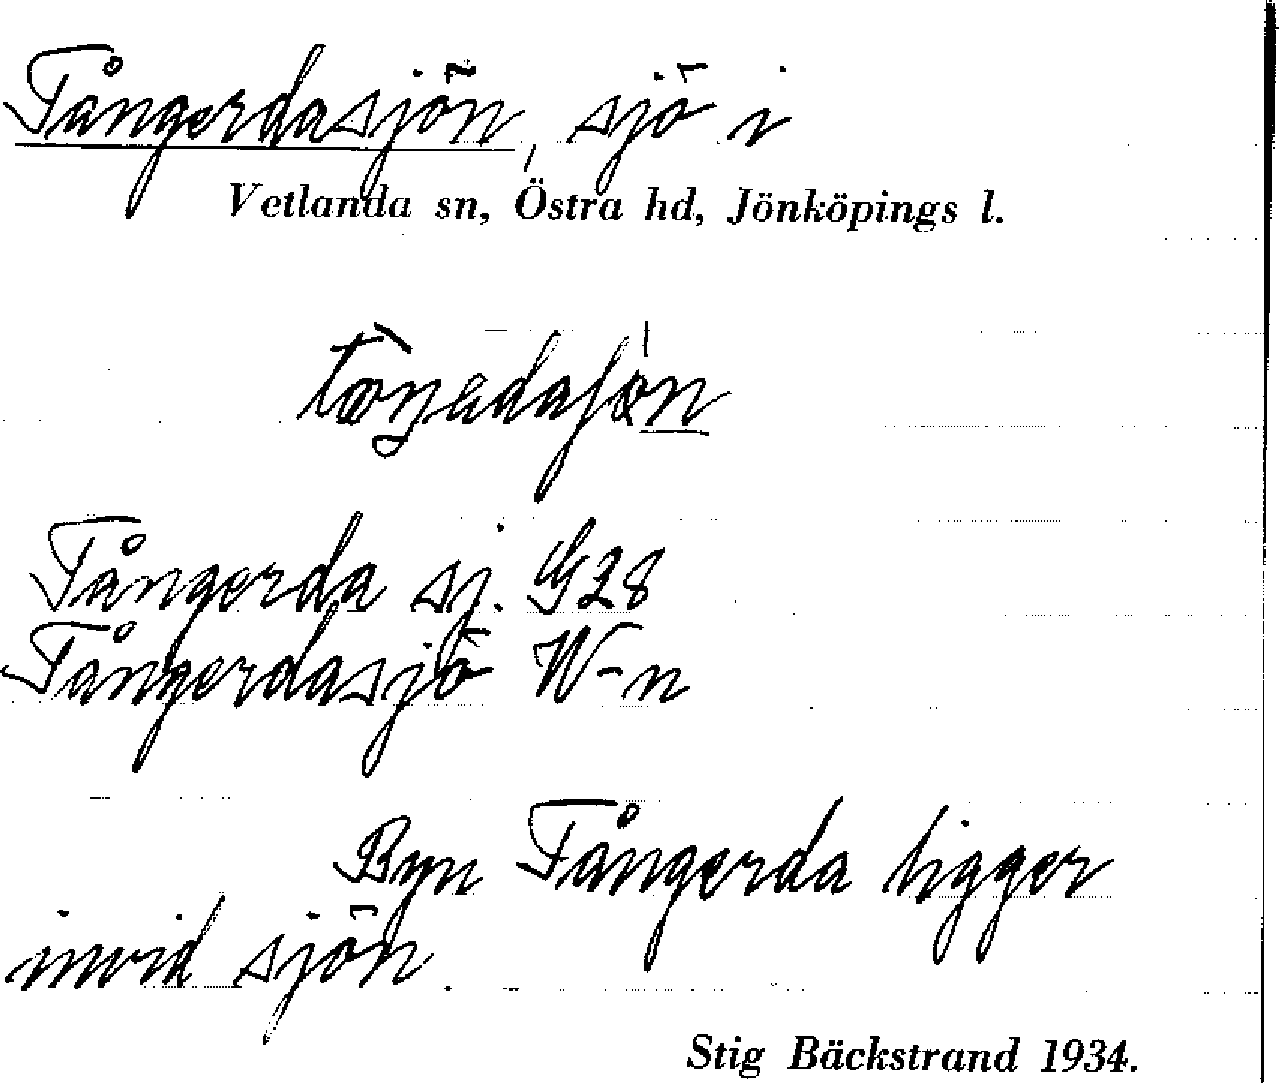 Tångerdasjön, sjö i
Vetlanda sn, Östra hd, Jönköpings l.
Tångerda sj. G28
Tångerdasjö W-n
Byn Tångerda ligger
invid sjön
Stig Bäckstrand 1934.